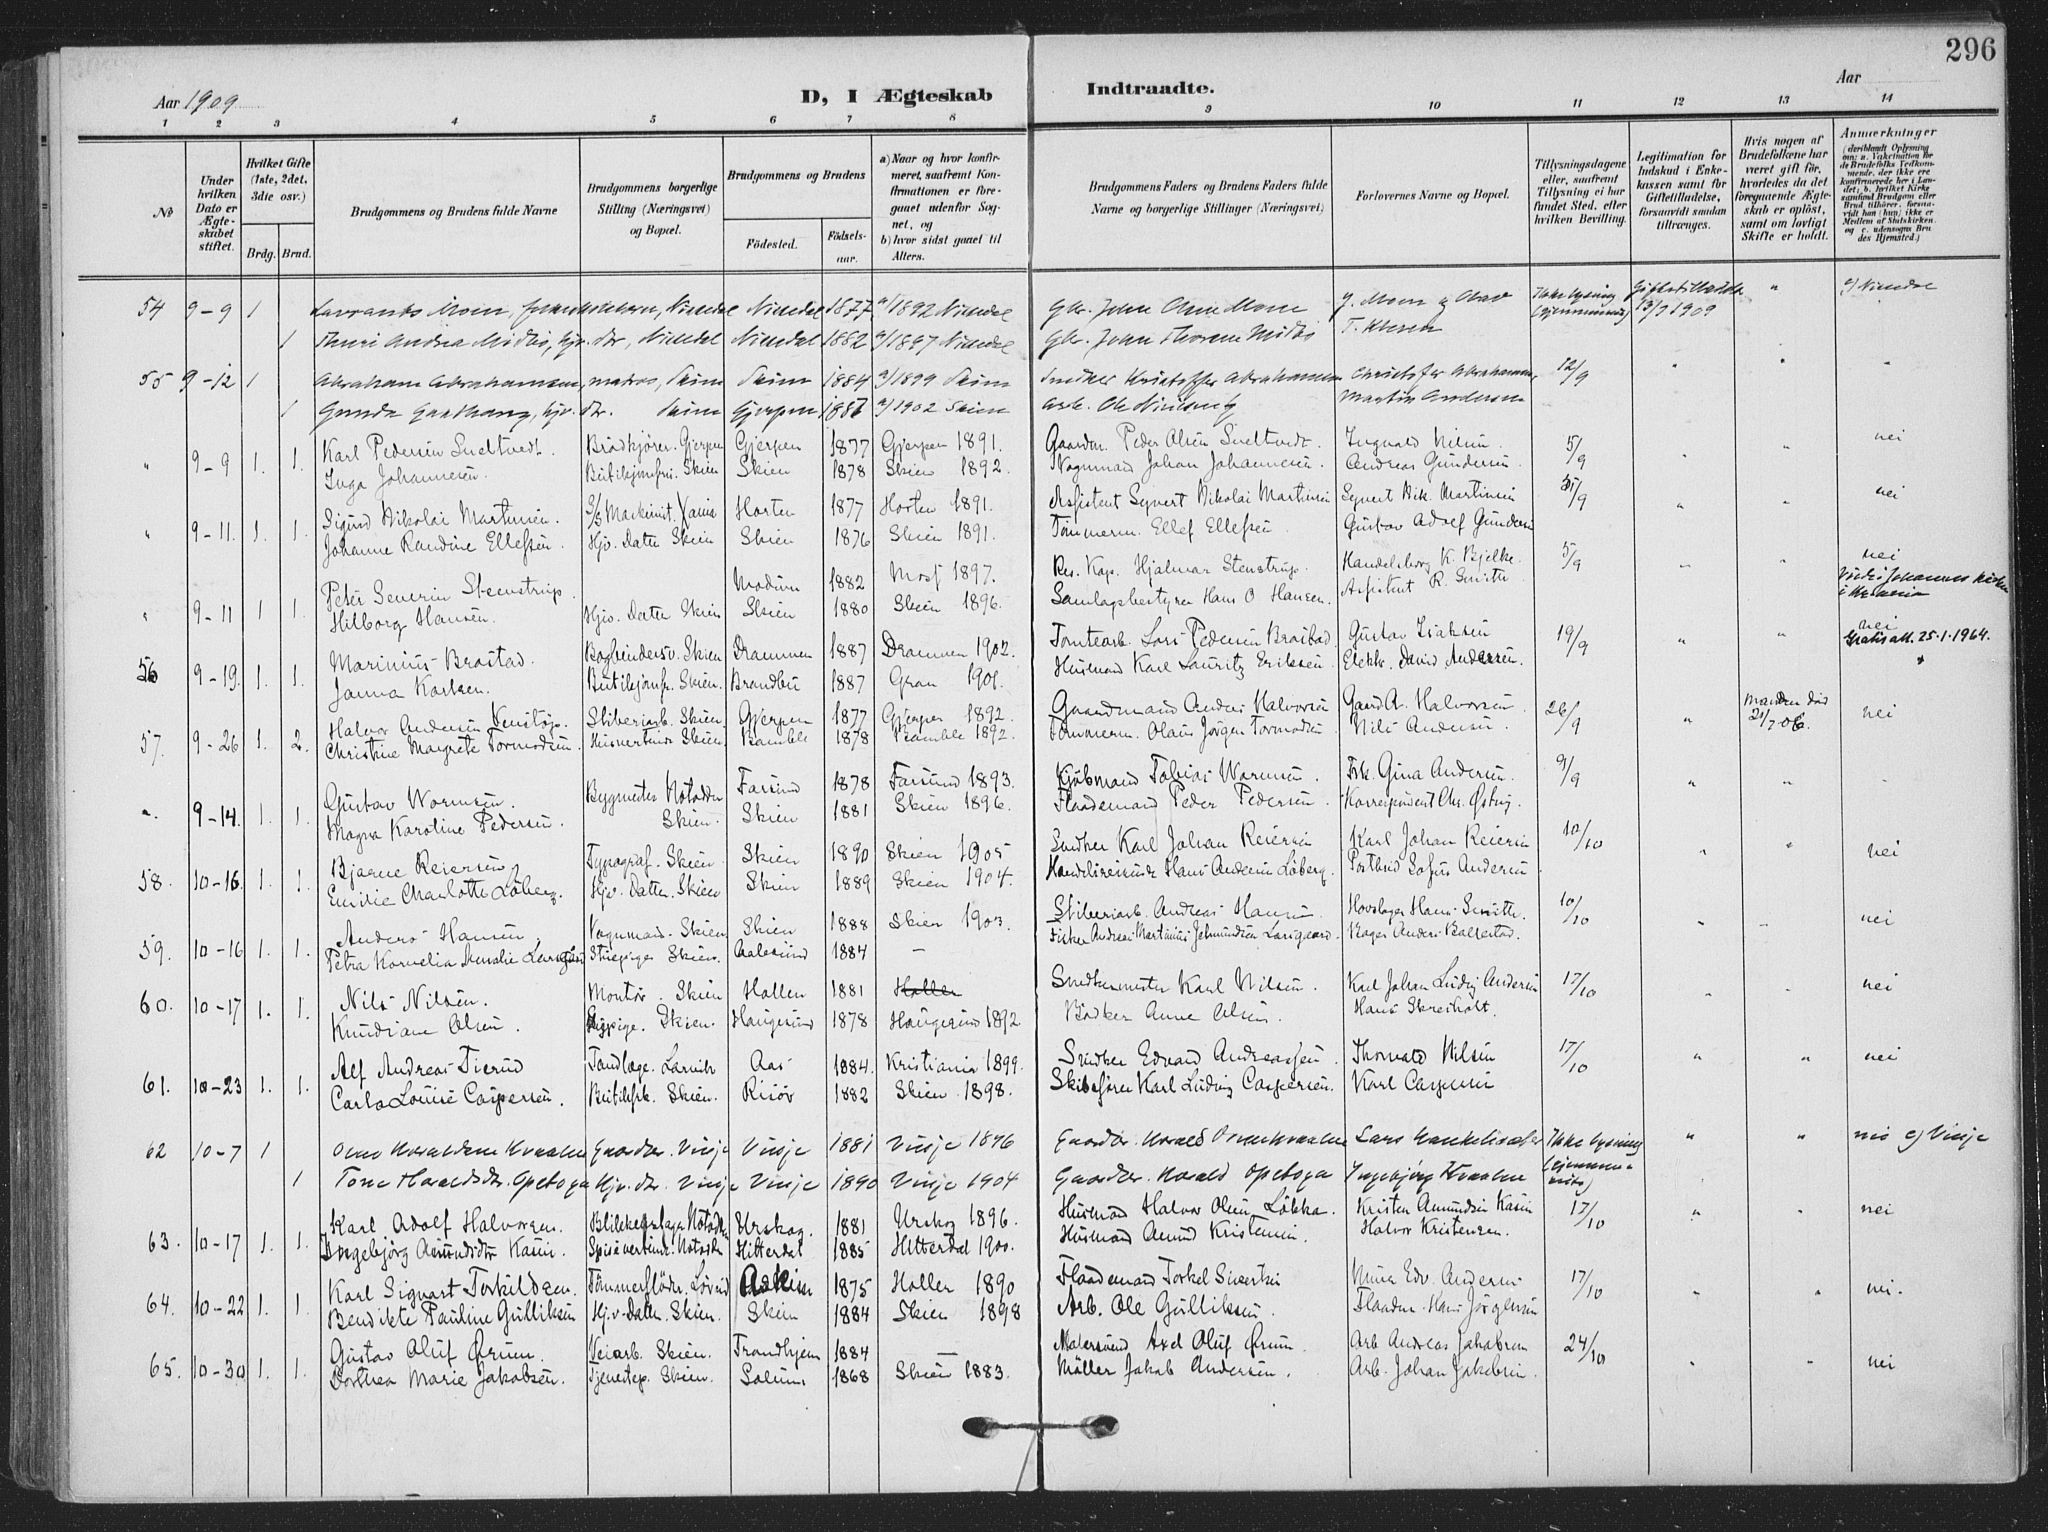 296
Aar 1909
D, I Ægteskab Indtraadte.
Aar
1 2 3 4 5 6 7 8 9 10 11 12 13 14
No
Under hvilken Dato er Ægteskabet stiftet.
Hvilket Gifte (1ste, 2det, 3die osv.)
Brdg. Brud.
Brudgommens og Brudens fulde Navne
Brudgommens borgerlige Stilling (Næringsvei) og Bopæl.
Brudgommens og Brudens
Fødested. Fødselsaar.
a) Naar og hvor konfirmeret, saafremt Konfirmationen er foregaaet udenfor Sognet, og
b) hvor sidst gaaet til Alters.
Brudgommens Faders og Brudens Faders fulde Navne og borgerlige Stillinger (Næringsvei)
Forlovernes Navne og Bopæl.
Tillysningsdagene eller, saafremt Tillysning ei har fundet Sted, efter hvilken Bevilling.
Legitimation for Indskud i Enkekassen samt for Giftetilladelse, forsaavidt saadan tiltrænges.
Hvis nogen af Brudefolkene har været gift før, hvorledes da det foregaaende Ægteskab er opløst, samt om lovligt Skifte er holdt.
Anmærkninger (deriblandt Oplysning om: a. Vakcination for de Brudefolks Vedkommende, der ikke ere konfirmerede her i Landet; b. hvilket Kirkesamfund Brudgom eller Brud tilhører, forsaavidt han (hun) ikke er Medlem af Statskirken, og c. udensogns Brudes Hjemsted.)
54 9-9 1 Nissedal Nissedal 1877 a/1892 Nissedal Gbr. John Moen Ikke lysning 13/9 1909 " c/ Nissedal
1 Thuri Andrea Midbø, hjv. dtr, Nissedal Nissedal 1882 a/1897 Nissedal Gbr. John Midbø
55 9-12 1 Abraham Abrahamsen, matros, Skien Skien 1884 a/1899 Skien Snedker Kristoffer Abrahamsen Christofer Abrahamsen, 12/9 " " "
1 Gunda hjv. dtr. Skien Gjerpen a/1902 Skien Arb. Ole Martin Andersen
" 9-9 1. 1. Karl Pedersen Sneltvedt. Brødkjører. Gjerpen Gjerpen 1877 Gjerpen 1891. Gaardm. Peder Olsen Sneltvedt. Ingvald Nilsen. 5/9 " " nei
Inga Johannesen. Butikjomfru. Skien Skien 1878 Skien 1892. Vognmand Johan Johannesen. Andreas Gundersen.
" 9-11. 1. 1. Sigurd Nikolai Martinsen. S/S Maskinist. Xania Horten 1877 Horten 1891. Assistent Syvert Nikolai Martinsen Syvert Nik. Martinsen /9 " " nei
Johanne Randine Ellefsen. Hjv. Datter Skien Skien 1876 Skien 1891. Tømmerm. Ellef Ellefsen Gustav Adolf Gundersen
" 9-11 1 1. Peter Severin Steenstrup. Modum 1882 Moss 1897. Res. Kap. Hjalmar Stenstrup. Handelsborg K. Bjelke. 5/9 " " nei
Hilborg Hansen. Hjv. Datter Skien Skien 1880 Skien 1896. Samlagsbestyrer Hans O Hansen. Assistent R. Smith Viede i Johannes Kirke i Kristiania
56 9-19. 1. 1. Marinius Brastad. Bogbindersv. Skien Drammen 1887 Drammen 1902. Tomtearb. Lars Pedersen Brastad Gustav Isaksen 19/9 " " nei
Janna Karlsen. Butikjomfr. Skien. Brandbu 1887 Gran 1901. Husmand Karl Lauritz Eriksen Elektr. David Andersen. Gratis att. 25.1.1964.
57. 9-26 1. 2. Halvor Andersen Venstøp. Sliberiarb. Skien Gjerpen 1877 Gjerpen 1892. Gaardmand Anders Halvorsen Gaard A. Halvorsen 26/9 " Manden død 21/7 06. nei
Christine Margrete Tormodsen. Husvertinde Skien. Bamble 1878 Bamble 1892. Tømmerm. Olaus Jørgen Tormodsen Nils Andersen
" 9-14. 1. 1. Gustav Wormsen. Bygmester Notodden Farsund 1878 Farsund 1893. Kjøbmand Tobias Wormsen. Frk. Gina Andersen. 9/9 " "
Magna Karoline Pedersen. Skien. Skien 1881 Skien 1896. Flaademand Peder Pedersen. Korrespondent Chr. Østby.
58. 10-16. 1. 1. Bjarne Reiersen Typograf. Skien Skien 1890 Skien 1905 Snedker Karl Johan Reiersen Karl Johan Reiersen 10/10 " " nei
Emilie Charlotte Løberg. Hjv. Datter. Skien Skien 1889 Skien 1904. Handelsreisende Hans Andersen Løberg. Postbud Sofus Andersen
59. 10-16 1. 1. Anders Hansen Vognmand. Skien Skien 1888 Skien 1903. Sliberiarb. Andreas Hansen. Hovslager Hans Smith. 10/10 " " nei
Petra Kornelia Amalie Skien. Aalesund 1884 - Fisker Andreas Martinius Larsgaard. Bager Anders Ballestad.
60. 10-17 1. 1. Nils Nilsen. Montør. Skien Holler 1881 Holler Smedkemester Karl Nilsen. Karl Johan Ludvig Andersen 17/10 " " nei
Knudiane Olsen. Skien. Haugesund 1878 Haugesund 1892 Bødker Arne Olsen. Hans Skresholt.
61. 10-23 1. 1. Alf Andreas Tierud Tandlæge. Larvik Aas 1884. Kristiania 1899. Snedker Edvard Andreassen. Thorvald Nilsen 17/10 " " nei
Carla Louise Caspersen. Butikfrk. Skien. Risør 1882 Skien 1898. Skibsfører Karl Ludvig Caspersen. Karl Caspersen
62 10-7 1 Gaardbr. Vinje Vinje 1881 Vinje 1896 Gaardbr. Ikke lysning " " nei c/ Vinje
1 Tone Haraldsdr. Opetoga Hjv. dtr. Vinje Vinje 1890 Vinje 1904 Gaardbr. Harald Opetoga Ingebjørg
63. 10-17. 1. 1. Karl Adolf Halvorsen. Blikkenslager Notodden Urskog. 1881 Urskog 1896. Husmand Halvor Olsen Løkka. Kristen Amundsen Kasin 17/10 " " nei
Ingebjørg Amundsdtr Kasin. Notodden Hitterdal 1885 Hitterdal 1900. Husmand Amund Kristensen. Halvor Kristensen.
64. 10-22 1. 1. Karl Sigvart Torkildsen. Tømmerfløder. Løveid Askim 1875 Holler 1890 Flaademand Torkel Sivertsen Edv. Andersen 17/10 " " nei.
Bendikte Pauline Gulliksen Hj.v-Datter. Skien. Skien 1884 Skien 1898 Arb. Ole Gulliksen. Flaadm. Hans Jørgensen
65. 10-30 1. 1. Gustav Oluf Ørum. Veiarb. Skien. Trondhjem 1884 - Axel Oluf Ørum. Arb Andreas Jakobsen 24/10 " " nei
Dorthea Marie Jakobsen. Tjenestep. Skien. Solum 1868 Skien 1883. Møller Jakob Andersen. Arb. Johan Jakobsen.